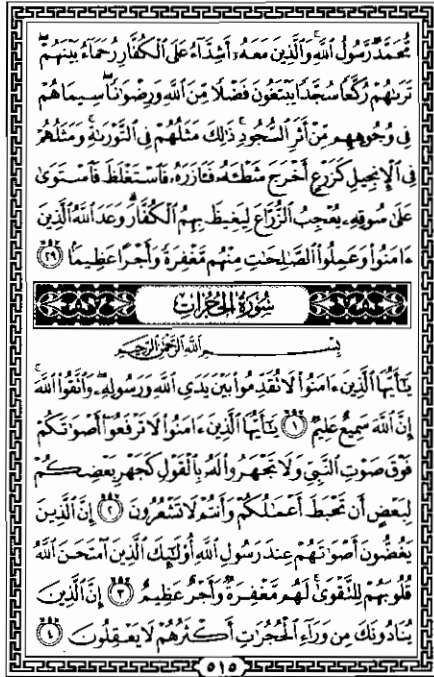 مُّحَمَّدٌ رَّسُولُ ٱللَّهِ ۚ وَٱلَّذِينَ مَعَهُۥٓ أَشِدَّآءُ عَلَى ٱلْكُفَّارِ رُحَمَآءُ بَيْنَهُمْ ۖ
تَرَىٰهُمْ رُكَّعًا سُجَّدًا يَبْتَغُونَ فَضْلًا مِّنَ ٱللَّهِ وَرِضْوَٰنًا ۖ سِيمَاهُمْ
فِى وُجُوهِهِم مِّنْ أَثَرِ ٱلسُّجُودِ ۚ ذَٰلِكَ مَثَلُهُمْ فِى ٱلتَّوْرَىٰةِ ۚ وَمَثَلُهُمْ
فِى ٱلْإِنجِيلِ كَزَرْعٍ أَخْرَجَ شَطْـَٔهُۥ فَـَٔازَرَهُۥ فَٱسْتَغْلَظَ فَٱسْتَوَىٰ
عَلَىٰ سُوقِهِۦ يُعْجِبُ ٱلزُّرَّاعَ لِيَغِيظَ بِهِمُ ٱلْكُفَّارَ ۗ وَعَدَ ٱللَّهُ ٱلَّذِينَ
ءَامَنُوا۟ وَعَمِلُوا۟ ٱلصَّٰلِحَٰتِ مِنْهُم مَّغْفِرَةً وَأَجْرًا عَظِيمًۢا ٢٩
سُورَةُ الْحُجُرَاتِ
بِسْمِ ٱللَّهِ ٱلرَّحْمَٰنِ ٱلرَّحِيمِ
يَٰٓأَيُّهَا ٱلَّذِينَ ءَامَنُوا۟ لَا تُقَدِّمُوا۟ بَيْنَ يَدَىِ ٱللَّهِ وَرَسُولِهِۦ ۖ وَٱتَّقُوا۟ ٱللَّهَ ۚ
إِنَّ ٱللَّهَ سَمِيعٌ عَلِيمٌ ١ يَٰٓأَيُّهَا ٱلَّذِينَ ءَامَنُوا۟ لَا تَرْفَعُوٓا۟ أَصْوَٰتَكُمْ
فَوْقَ صَوْتِ ٱلنَّبِىِّ وَلَا تَجْهَرُوا۟ لَهُۥ بِٱلْقَوْلِ كَجَهْرِ بَعْضِكُمْ
لِبَعْضٍ أَن تَحْبَطَ أَعْمَٰلُكُمْ وَأَنتُمْ لَا تَشْعُرُونَ ٢ إِنَّ ٱلَّذِينَ
يَغُضُّونَ أَصْوَٰتَهُمْ عِندَ رَسُولِ ٱللَّهِ أُو۟لَٰٓئِكَ ٱلَّذِينَ ٱمْتَحَنَ ٱللَّهُ
قُلُوبَهُمْ لِلتَّقْوَىٰ ۚ لَهُم مَّغْفِرَةٌ وَأَجْرٌ عَظِيمٌ ٣ إِنَّ ٱلَّذِينَ
يُنَادُونَكَ مِن وَرَآءِ ٱلْحُجُرَٰتِ أَكْثَرُهُمْ لَا يَعْقِلُونَ ٤
٥١٥